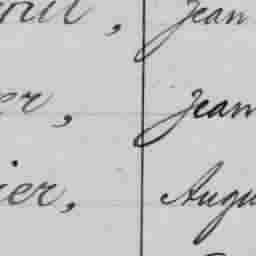 Jean
er, Jean
ier, Augu